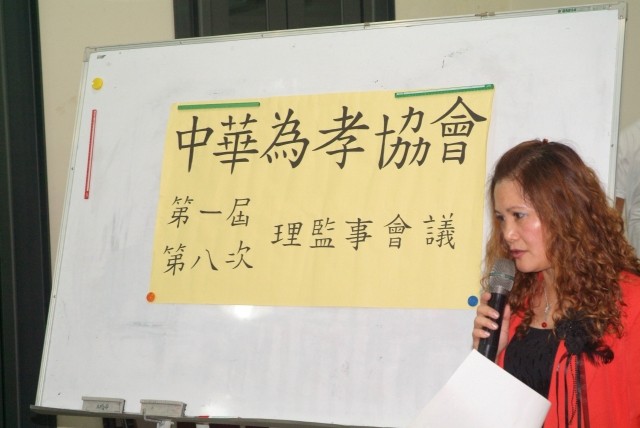 中華為孝協會
第一屆
第八次
理監事會議